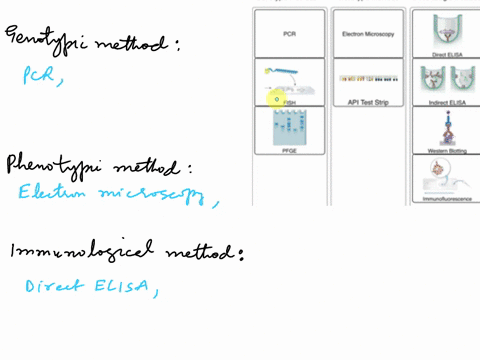 Genotypic method :
PCR,
Phenotypi method :
Electron microscopy,
Immunological method :
Direct ELISA,
PCR
FISH
PFGE
Electron Microscopy
API Test Strip
Direct ELISA
Indirect ELISA
Western Blotting
Immunofluorescence